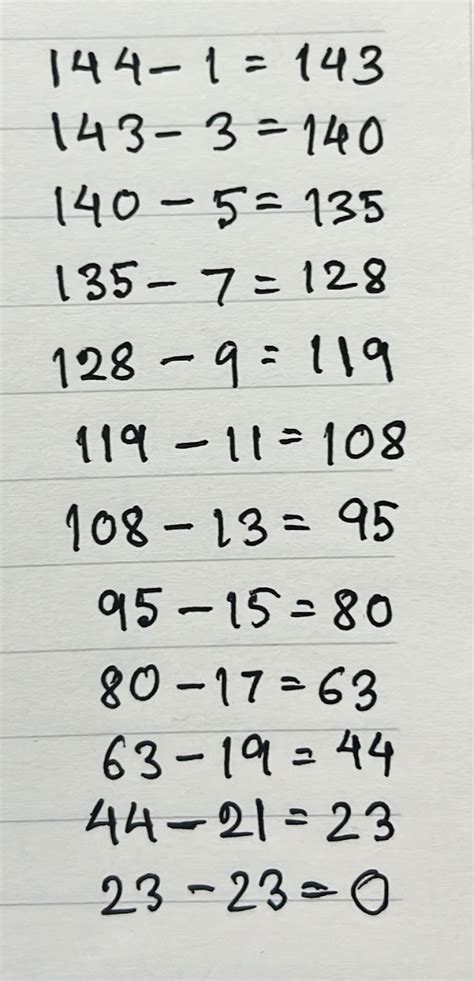 144 - 1 = 143
143 - 3 = 140
140 - 5 = 135
135 - 7 = 128
128 - 9 = 119
119 - 11 = 108
108 - 13 = 95
95 - 15 = 80
80 - 17 = 63
63 - 19 = 44
44 - 21 = 23
23 - 23 = 0